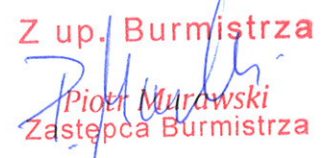 Z up. Burmistrza
Piotr Murawski
Zastępca Burmistrza